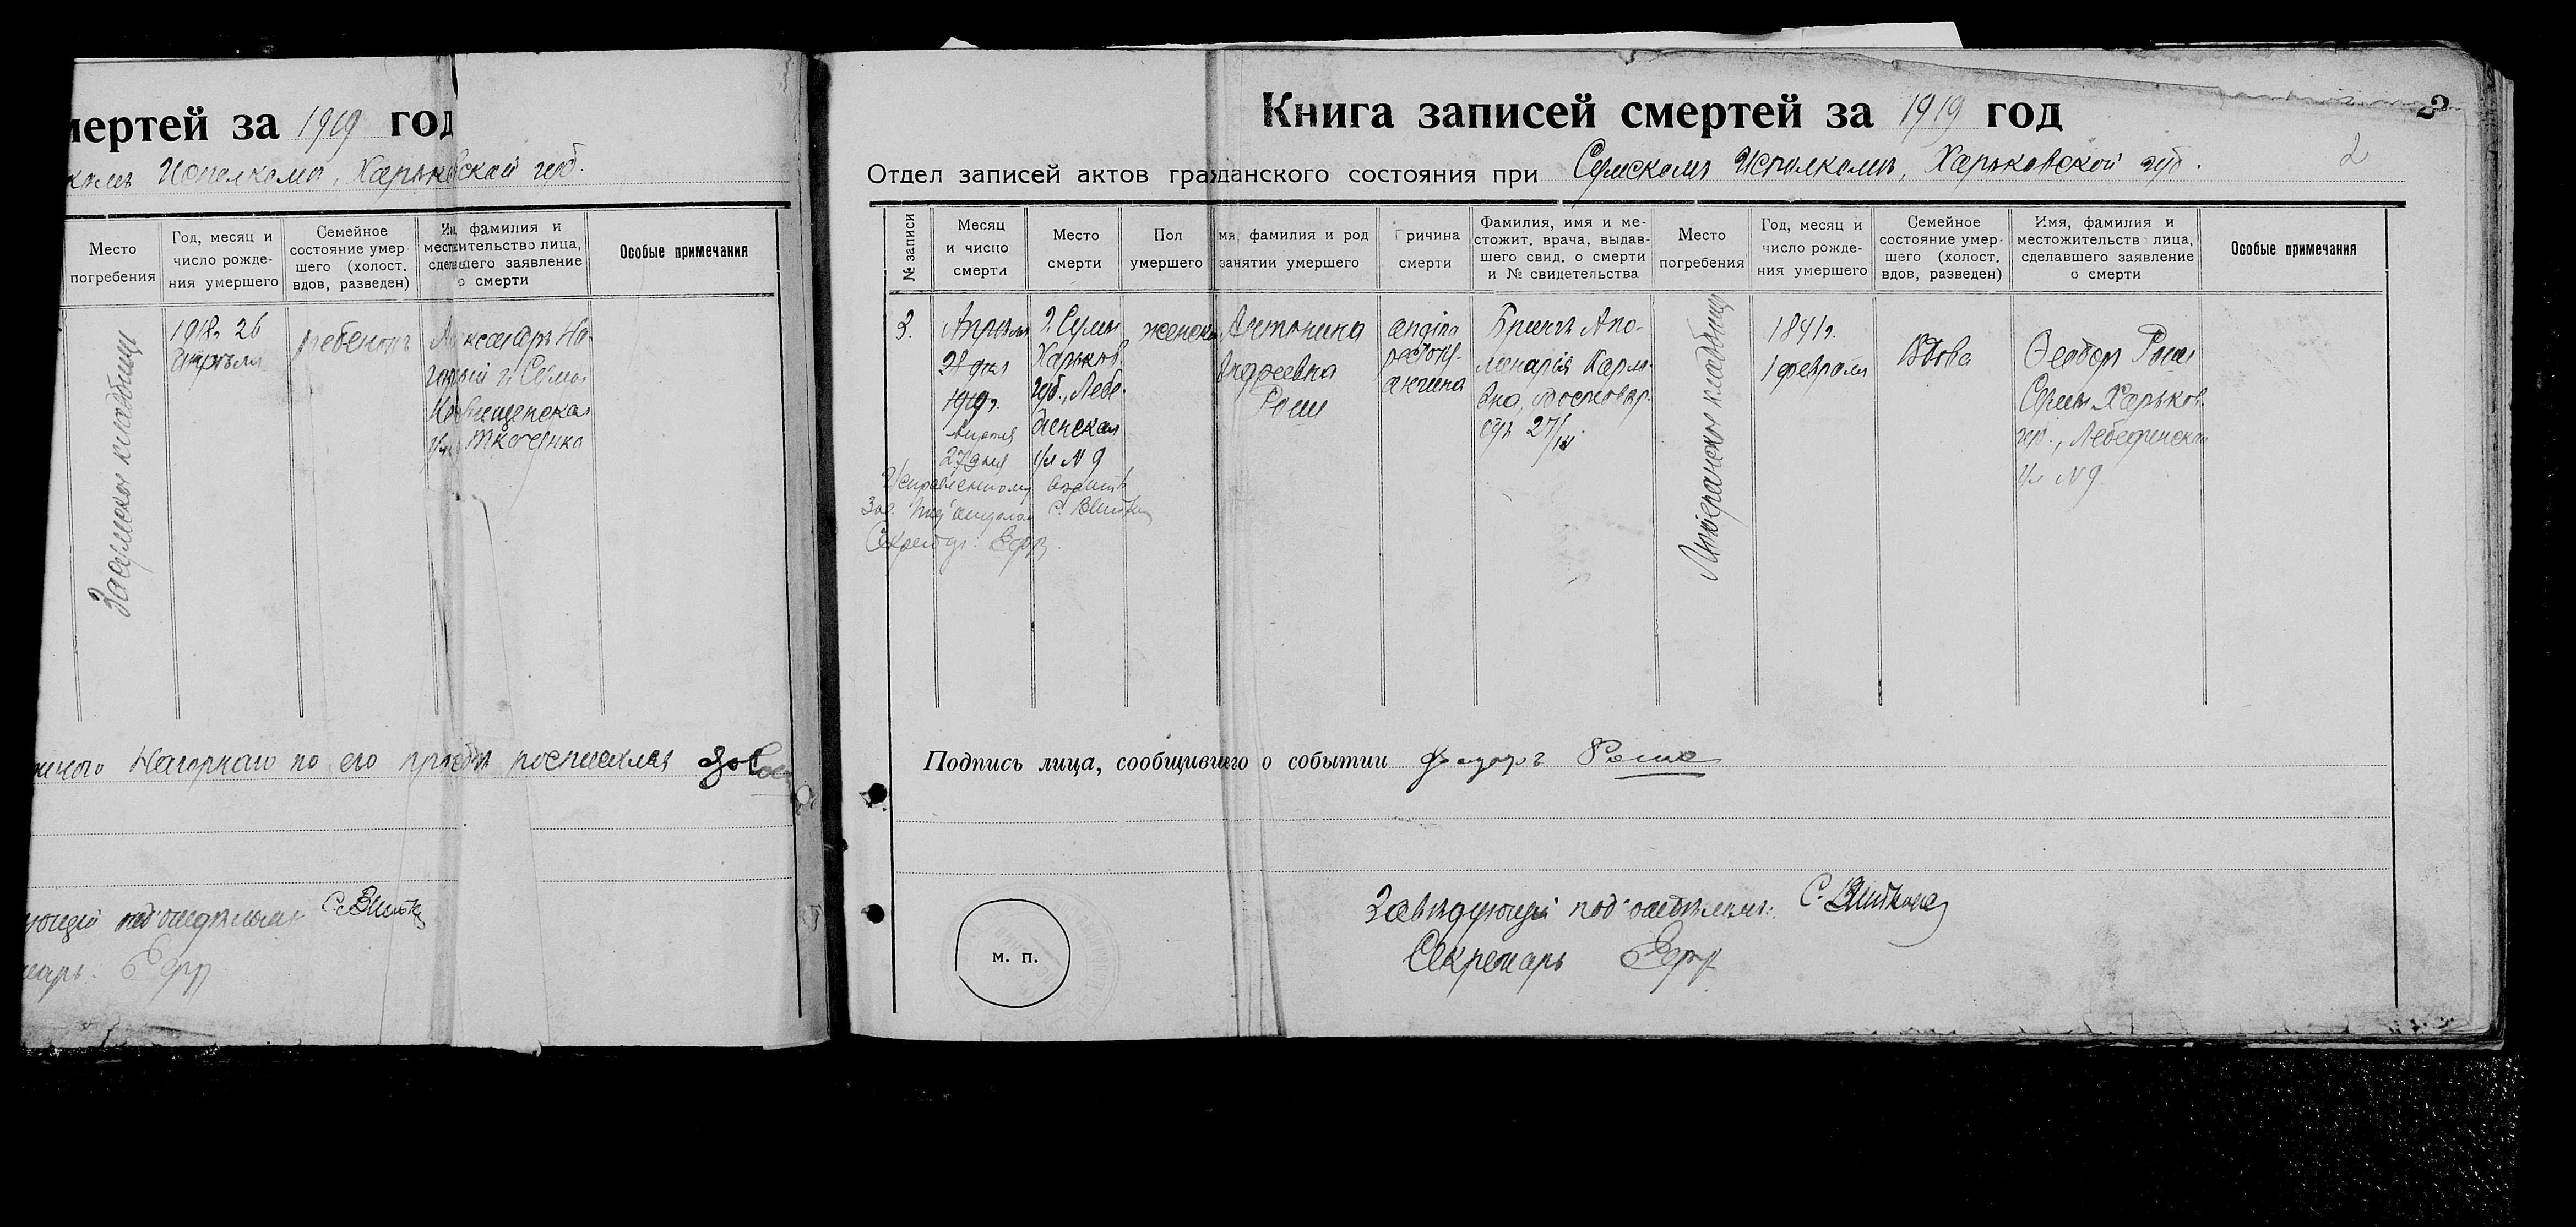 мертей за 1919 год
комъ Исполкомъ, Харьковской губ.
Место погребения
Год, месяц и число рождения умершего
Семейное состояние умершего (холост. вдов, разведен)
фамилия и местожительство лица, сделавшего заявление о смерти
Особые примечания
Засумское кладбище
26
Апрѣля
ребенокъ
Александръ На-
горный г. Сумы
Ткаченко
Нагорнаго по его просьбѣ
под'отдѣломъ
2
Книга записей смертей за 1919 год
Отдел записей актов гражданского состояния при Сумскомъ Исполкомъ, Харьковской губ.
2
№ записи
Месяц
и число
смерти
Место
смерти
Пол
умершего
мя, фамилия и род
занятии умершего
Причина
смерти
Фамилия, имя и ме-
стожит. врача, выдав-
шего свид. о смерти
и № свидетельства
Место
погребения
Год, месяц и
число рожде-
ния умершего
Семейное
состояние умер-
шего (холост.
вдов, разведен)
Имя, фамилия и
местожительство лица,
сделавшего заявление
о смерти
Особые примечания
2.
Апрѣля
дня
1919г.
Апрѣля
27 дня
г. Сумы
Харьков.
губ., Лебе-
динская
ул № 9
женск
Антонина
Андреевна
Роше
angina
pectoris
ангина
Лютеранское кладбище
1841г.
1 февраля
Вдова
Феодоръ Роше
Сумы Харьков.
губ., Лебединская
ул № 9.
Исправленному вѣрить
Зав. под'отдѣломъ
Секретарь:
Подпись лица, сообщившего о событии Федоръ Роше
м. п.
Завѣдующій под'отдѣломъ:
Секретарь